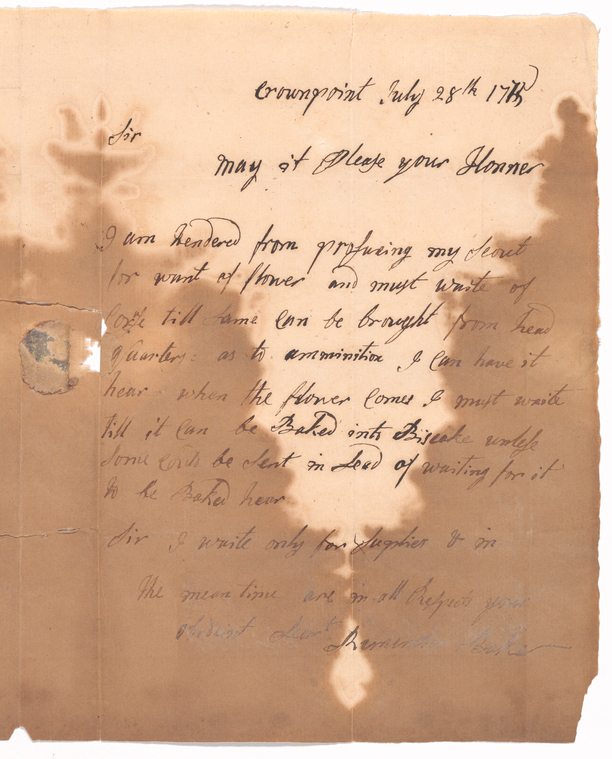 Crownpoint July 28th 1775
Sir
may it Please your Honner
I am hendered from profuxing my Scout
for want of flower and must waite of
Cors till same can be brought from head
Quarters: as to amminition I can have it
hear when the flower comes I must waite
till it can be Baked into Biscake unless
some could be Sent in Sead of waiting for it
to be Baked hear
Sir I waite only for Suplies & in
the meantime are in all Respects your
obedient Servt Remember Baker